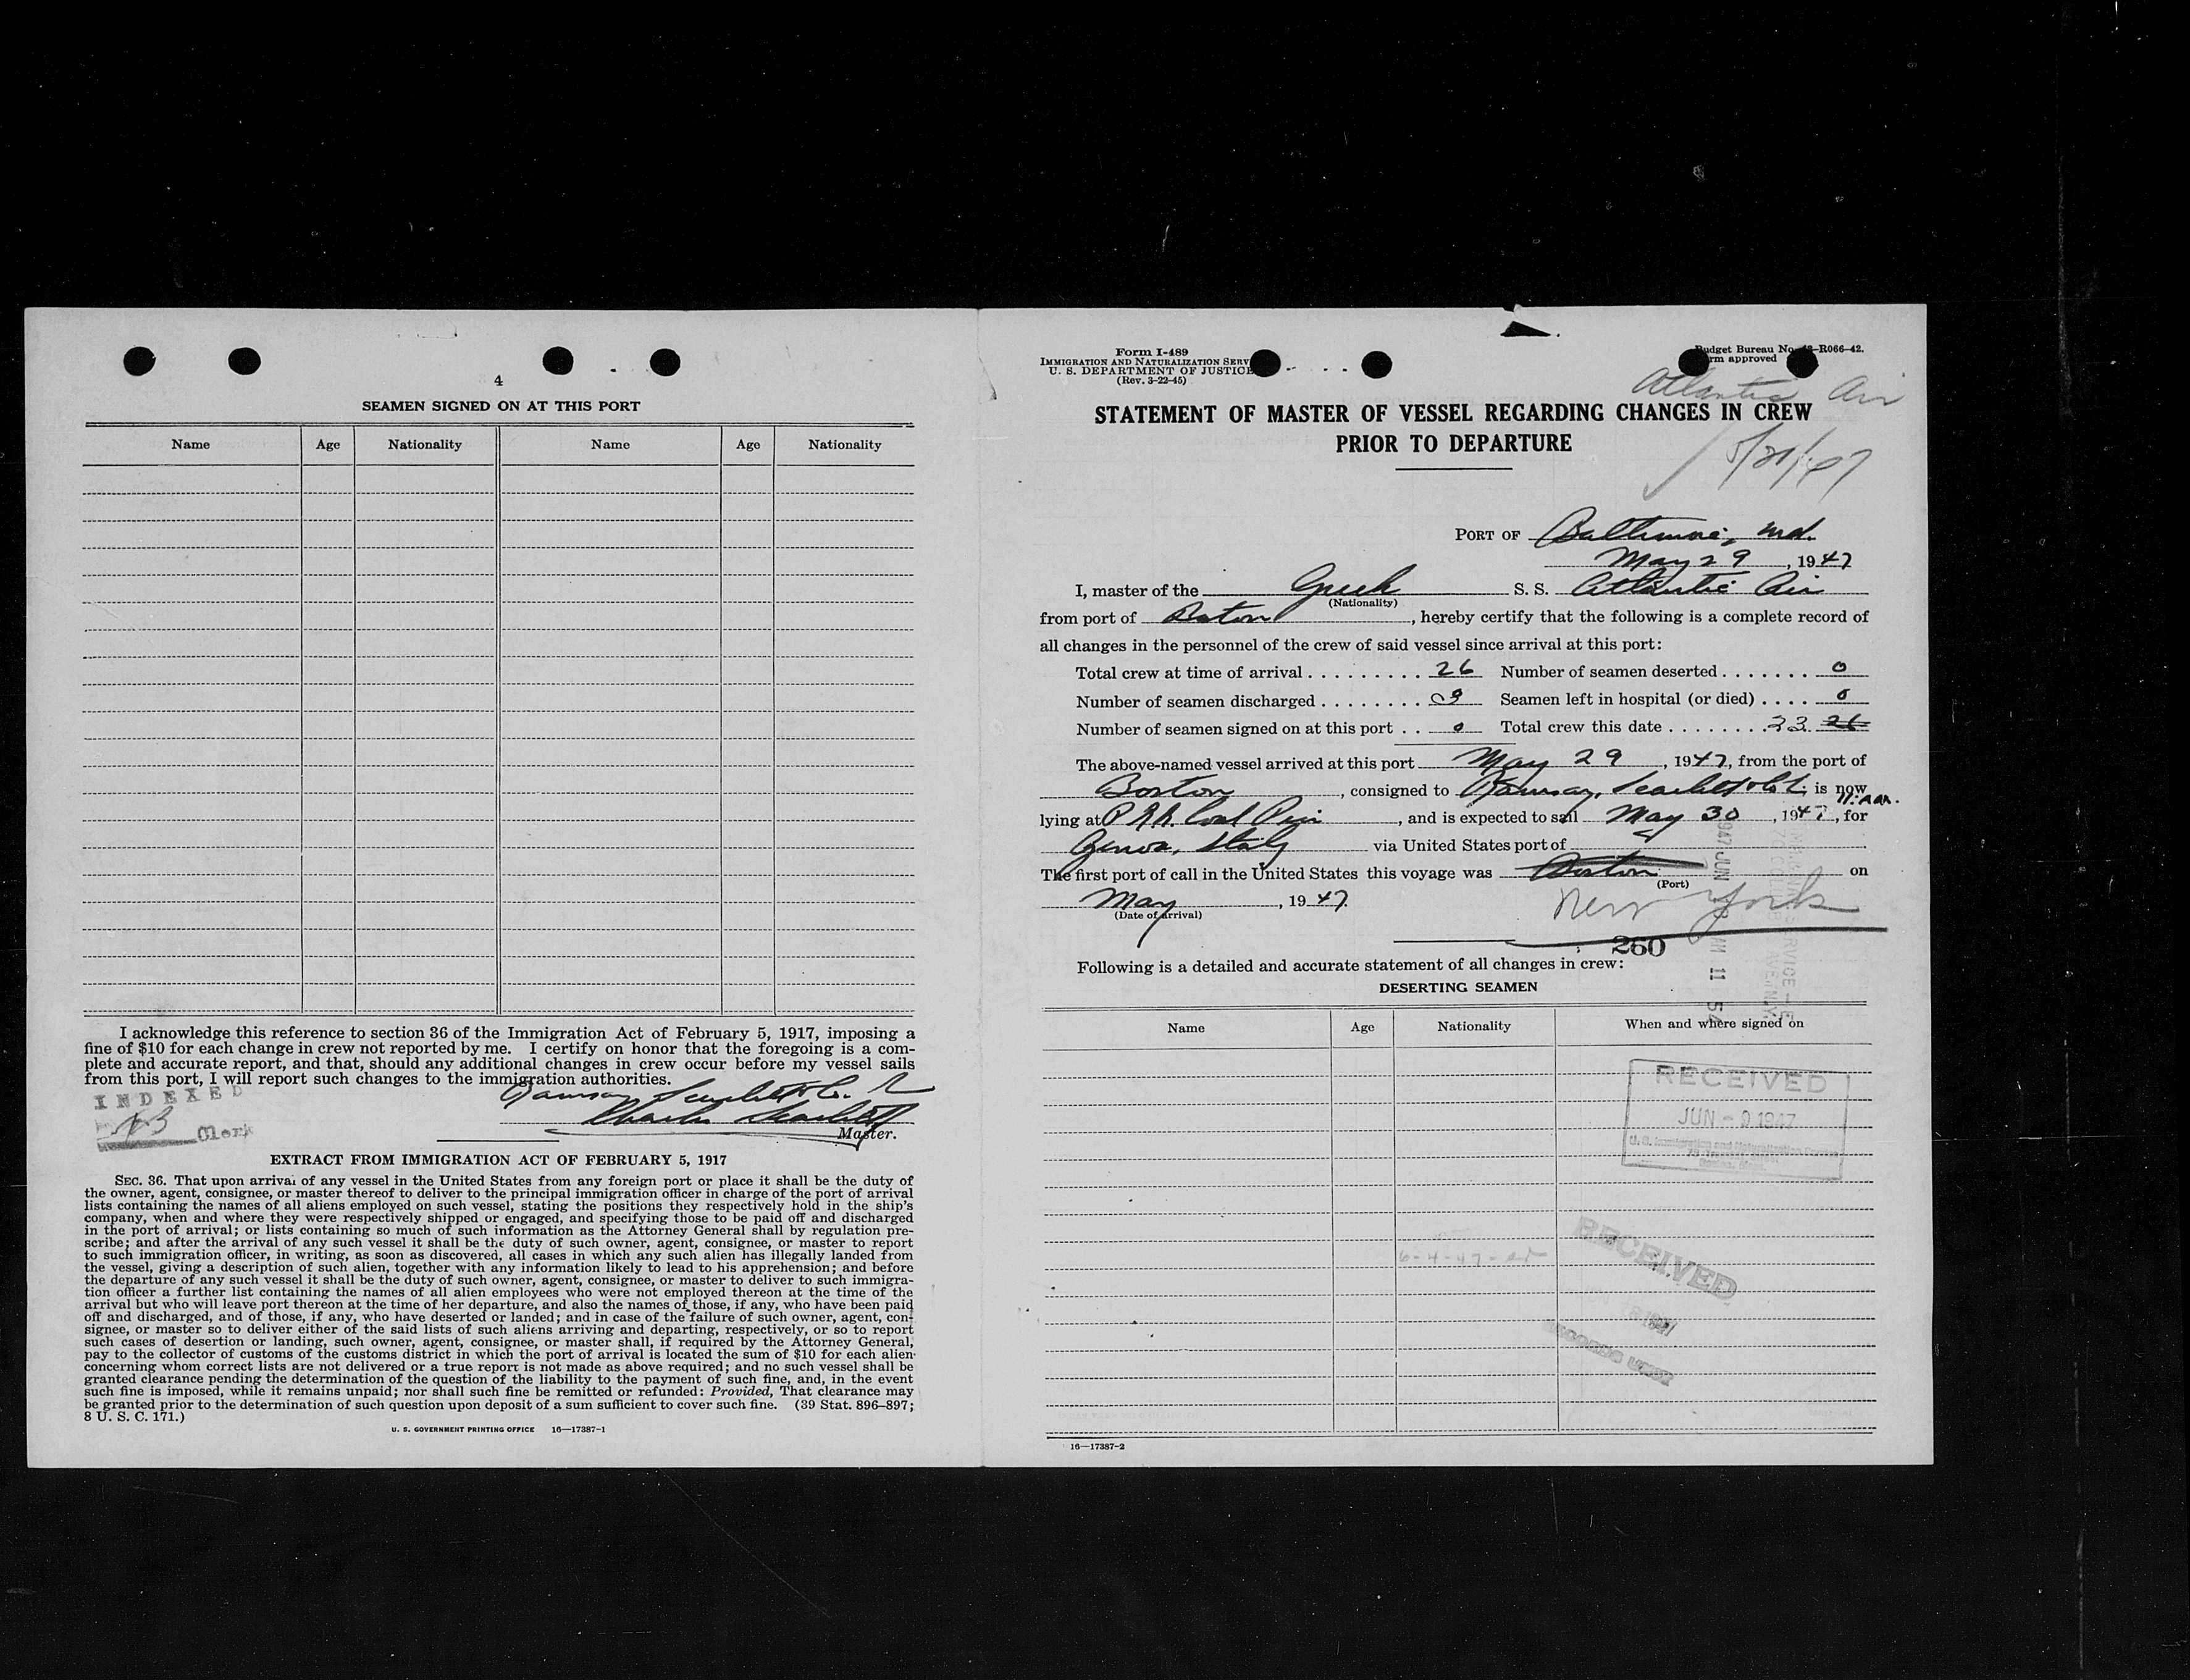 4
SEAMEN SIGNED ON AT THIS PORT
Name Age Nationality Name Age Nationality
I acknowledge this reference to section 36 of the Immigration Act of February 5, 1917, imposing a
fine of $10 for each change in crew not reported by me. I certify on honor that the foregoing is a com-
plete and accurate report, and that, should any additional changes in crew occur before my vessel sails
from this port, I will report such changes to the immigration authorities.
INDEXED
Clerk
Ramsay Scarlett & Co.
Charles Scarlett
Master.
EXTRACT FROM IMMIGRATION ACT OF FEBRUARY 5, 1917
SEC. 36. That upon arrival of any vessel in the United States from any foreign port or place it shall be the duty of
the owner, agent, consignee, or master thereof to deliver to the principal immigration officer in charge of the port of arrival
lists containing the names of all aliens employed on such vessel, stating the positions they respectively hold in the ship's
company, when and where they were respectively shipped or engaged, and specifying those to be paid off and discharged
in the port of arrival; or lists containing so much of such information as the Attorney General shall by regulation pre-
scribe; and after the arrival of any such vessel it shall be the duty of such owner, agent, consignee, or master to report
to such immigration officer, in writing, as soon as discovered, all cases in which any such alien has illegally landed from
the vessel, giving a description of such alien, together with any information likely to lead to his apprehension; and before
the departure of any such vessel it shall be the duty of such owner, agent, consignee, or master to deliver to such immigra-
tion officer a further list containing the names of all alien employees who were not employed thereon at the time of the
arrival but who will leave port thereon at the time of her departure, and also the names of those, if any, who have been paid
off and discharged, and of those, if any, who have deserted or landed; and in case of the failure of such owner, agent, con-
signee, or master so to deliver either of the said lists of such aliens arriving and departing, respectively, or so to report
such cases of desertion or landing, such owner, agent, consignee, or master shall, if required by the Attorney General,
pay to the collector of customs of the customs district in which the port of arrival is located the sum of $10 for each alien
concerning whom correct lists are not delivered or a true report is not made as above required; and no such vessel shall be
granted clearance pending the determination of the question of the liability to the payment of such fine, and, in the event
such fine is imposed, while it remains unpaid; nor shall such fine be remitted or refunded: Provided, That clearance may
be granted prior to the determination of such question upon deposit of a sum sufficient to cover such fine. (39 Stat. 896–897;
8 U. S. C. 171.)
U. S. GOVERNMENT PRINTING OFFICE 16—17387-1
Form I-489
IMMIGRATION AND NATURALIZATION SERV
U. S. DEPARTMENT OF JUSTICE
(Rev. 3-22-45)
Budget Bureau No. R066-42.
approved
Atlantic Air
STATEMENT OF MASTER OF VESSEL REGARDING CHANGES IN CREW
PRIOR TO DEPARTURE
PORT OF Baltimore, Md.
May 29, 1947
I, master of the Greek S. S. Atlantic Air
(Nationality)
from port of Boston, hereby certify that the following is a complete record of
all changes in the personnel of the crew of said vessel since arrival at this port:
Total crew at time of arrival . . . . . . . . . 26 Number of seamen deserted . . . . . . . 0
Number of seamen discharged . . . . . . . . Seamen left in hospital (or died) . . . . 0
Number of seamen signed on at this port . . 0 Total crew this date . . . . . . . . 23 26
The above-named vessel arrived at this port May 29, 1947, from the port of
Boston, consigned to Ramsay, Scarlett & Co. is now
11: AM.
lying at P.R.R. Coal Pier, and is expected to sail May 30, 1947, for
Genoa, Italy via United States port of
The first port of call in the United States this voyage was Boston on
(Port)
New York
May, 1947
(Date of arrival)
260
1947 JUN AM 11 54
Following is a detailed and accurate statement of all changes in crew:
DESERTING SEAMEN
Name Age Nationality When and where signed on
RECEIVED
JUN - 9 1947
6-4-47
RECEIVED
16—17387-2